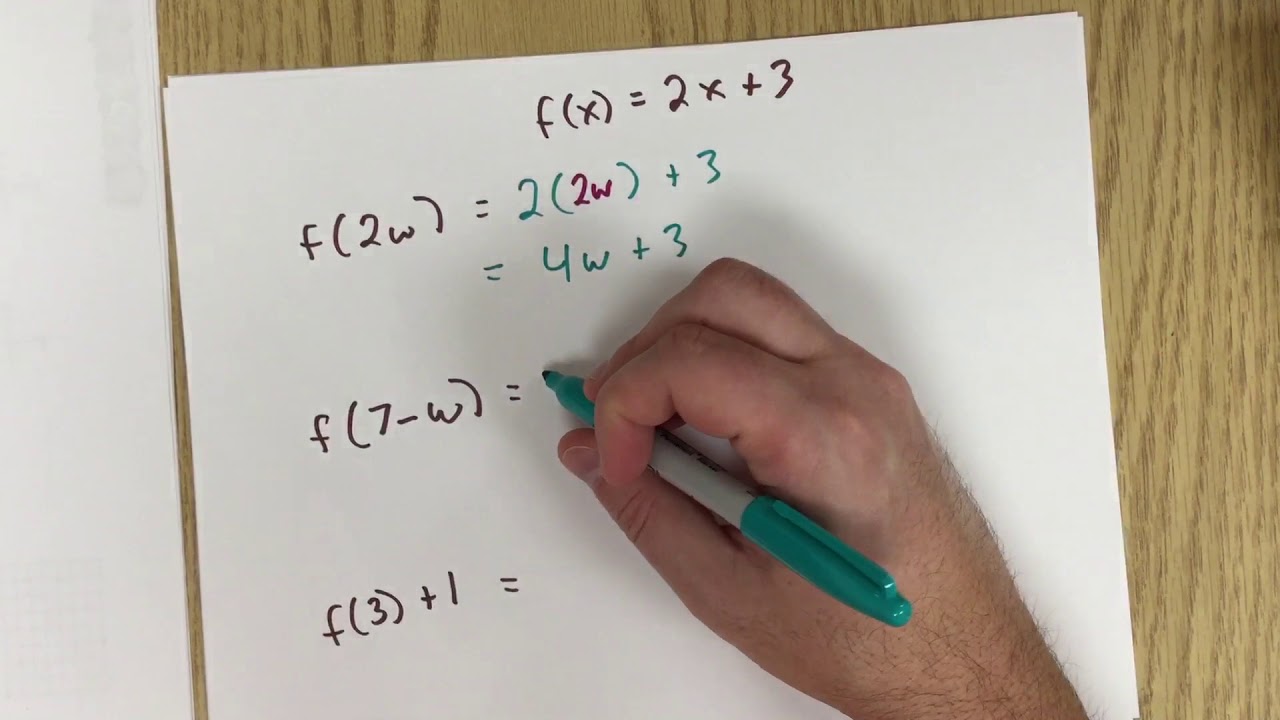 f(x) = 2x + 3
f(2w) = 2(2w) + 3
= 4w + 3
f(7-w) =
f(3) + 1 =